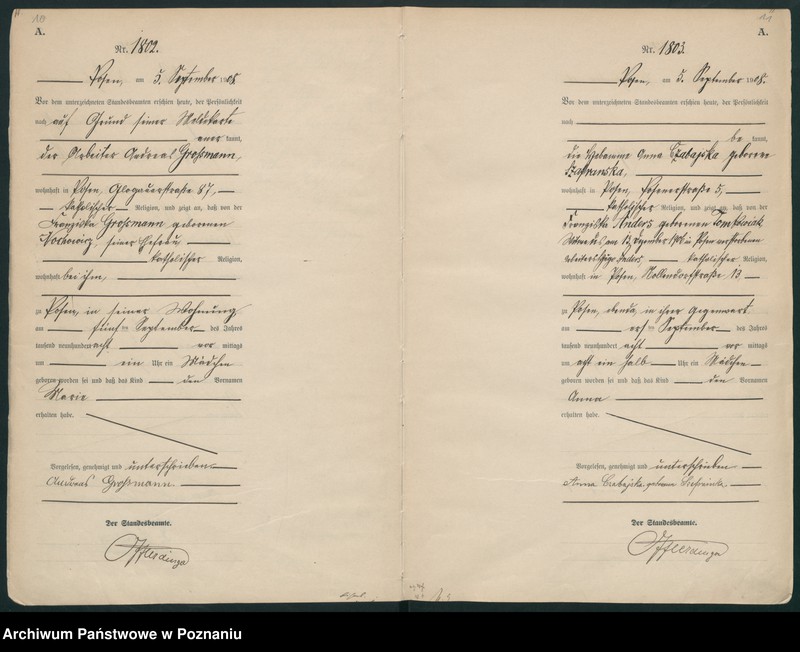 10
A.
Nr. 1802.
Posen, am 5. September 1908.
Vor dem unterzeichneten Standesbeamten erschien heute, der Persönlichkeit
nach auf Grund seiner Meldekarte
anerkannt,
der Arbeiter Andreas Großmann,
wohnhaft in Posen, Glogauerstraße 87,
katholischer Religion, und zeigte an, daß von der
Franziska Großmann geborenen
seiner Ehefrau
katholischer Religion,
wohnhaft bei ihm,
zu Posen, in seiner Wohnung
am fünften September des Jahres
tausend neunhundert acht vormittags
um ein Uhr ein Mädchen
geboren worden sei und daß das Kind den Vornamen
Marie
erhalten habe.
Vorgelesen, genehmigt und unterschrieben
Andreas Großmann.
Der Standesbeamte.
11
A.
Nr. 1803.
Posen, am 5. September 1908.
Vor dem unterzeichneten Standesbeamten erschien heute, der Persönlichkeit
nach
bekannt,
die Hebamme Anna Czabajska geborene
Szafranska,
wohnhaft in Posen, Posenerstraße 5,
katholischer Religion, und zeigte an, daß von der
Franziska Anders geborenen Tomkowiak
Witwe des, am 13. Dezember in Posen verstorbenen
Arbeiters Anders, katholischer Religion,
wohnhaft in Posen, Nollendorfstraße 13,
zu Posen, ebenda, in ihrer Gegenwart
am ersten September des Jahres
tausend neunhundert acht vormittags
um acht ein halb Uhr ein Mädchen
geboren worden sei und daß das Kind den Vornamen
Anna
erhalten habe.
Vorgelesen, genehmigt und unterschrieben
Anna Czabajska geborene
Der Standesbeamte.
Archiwum Państwowe w Poznaniu